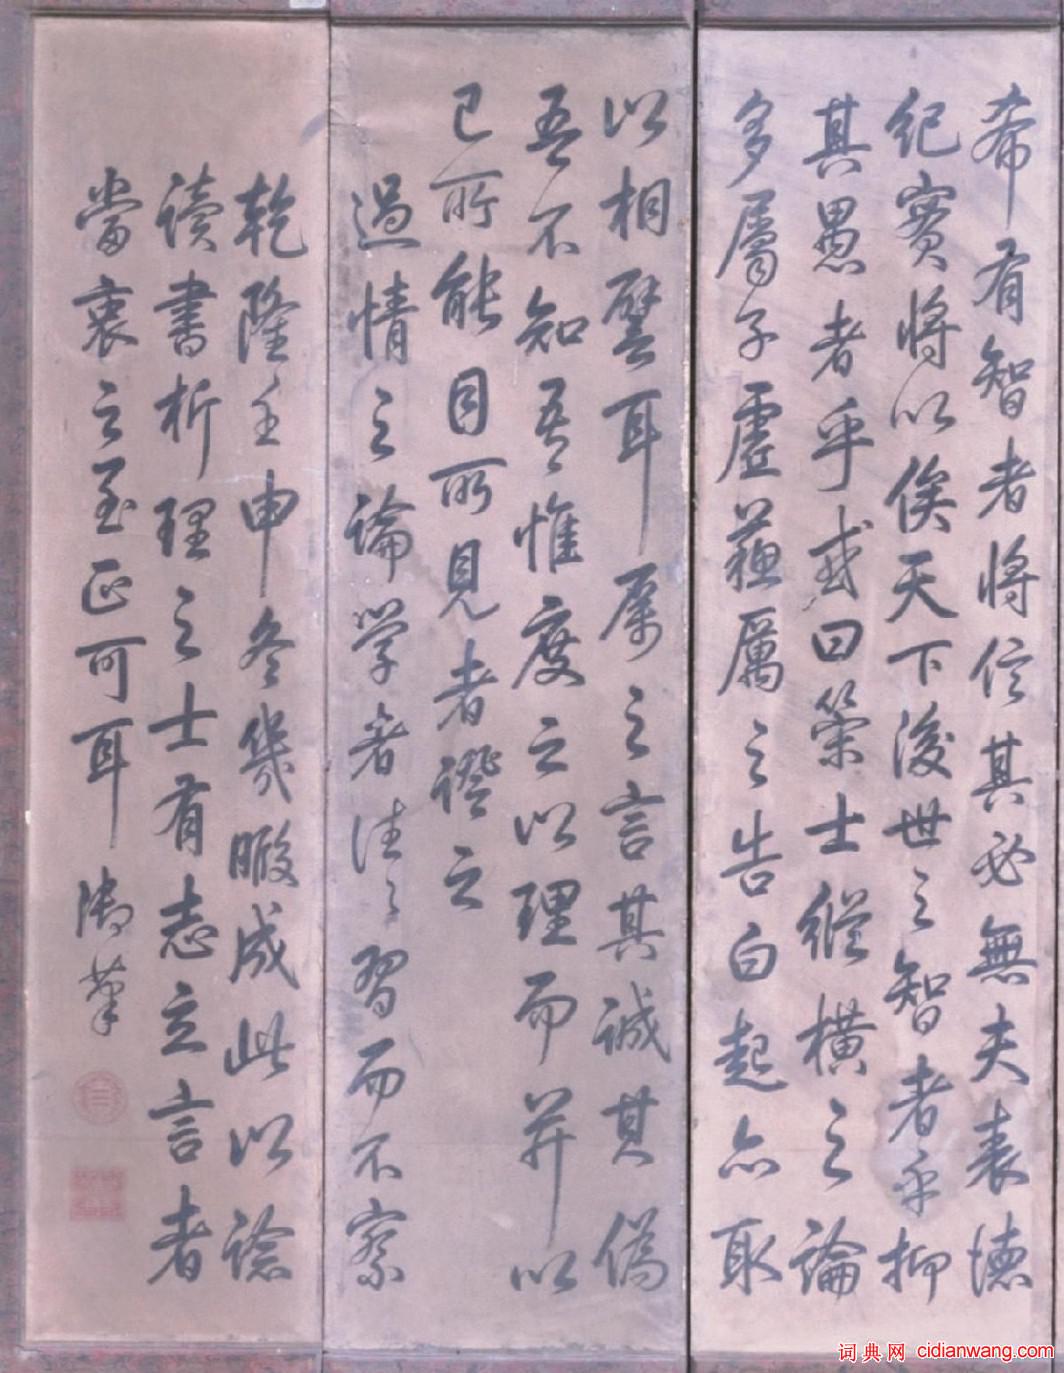 希有智者將信其必無夫表德
紀實將以俟天下後世之智者乎抑
其愚者乎或曰策士縱橫之論
多屬子虛蘓厲之告白起亦取
以相譬耳厲之言其誠其偽
吾不知吾惟度之以理而并以
己所能目所見者證之
過情之論學者往々習而不察
乾隆壬申冬幾暇成此以諗
讀書析理之士有志立言者
當衷之至正可耳 御筆
词典网 cidianwang.com